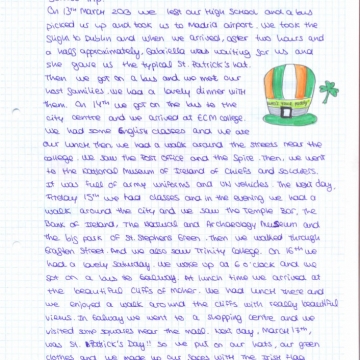 On 13th March 2013 we left our High School and a bus
picked us up and took us to Madrid airport. We took the
flight to Dublin and when we arrived, after two hours and
a half approximately, Gabriella was waiting for us and
she gave us the typical St. Patrick's hat.
Then we got on a bus and we met our
host families. We had a lovely dinner with
them. On 14th we got on the bus to the
city centre and we arrived at ECM college.
We had some English classes and we ate
our lunch then we had a walk around the streets near the
college. We saw the Post Office and the Spire. Then, we went
to the National Museum of Ireland of Chiefs and soldiers.
It was full of army uniforms and UN vehicles. The next day,
Friday 15th we had classes and in the evening we had a
walk around the city and we saw the Temple Bar, the
Bank of Ireland, the Natural and Archaeology Museum and
the big park of St. Stephens Green. Then we walked through
Grafton Street. And we also saw Trinity College. On 16th we
had a lovely Saturday. We woke up at 6 o'clock and we
got on a bus to Galway. At lunch time we arrived at
the beautiful Cliffs of Moher. We had lunch there and
we enjoyed a walk around the cliffs with really beautiful
views. In Galway we went to a shopping centre and we
visited some squares near the mall. Next day, March 17th,
was St. Patrick's Day!! So we put on our hats, our green
clothes and we made up our faces with the Irish flag